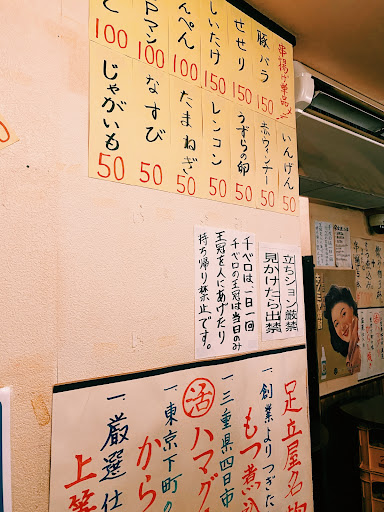 串揚げ単品
豚バラ 150
せせり 150
しいたけ 150
んぺん 100
Pマン 100
100
いんげん 50
赤ウィンナー 50
うずらの卵 50
レンコン 50
たまねぎ 50
なすび 50
じゃがいも 50
立ちション厳禁
見かけたら出禁
千ベロは、一日一回
千ベロの王冠は当日のみ
王冠を人にあげたり
持ち帰り禁止です。
足立屋名物
一、創業よりつぎた
もつ煮込
一、三重県四日市
活ハマグ
一、東京下町の
から
一、厳選仕
上